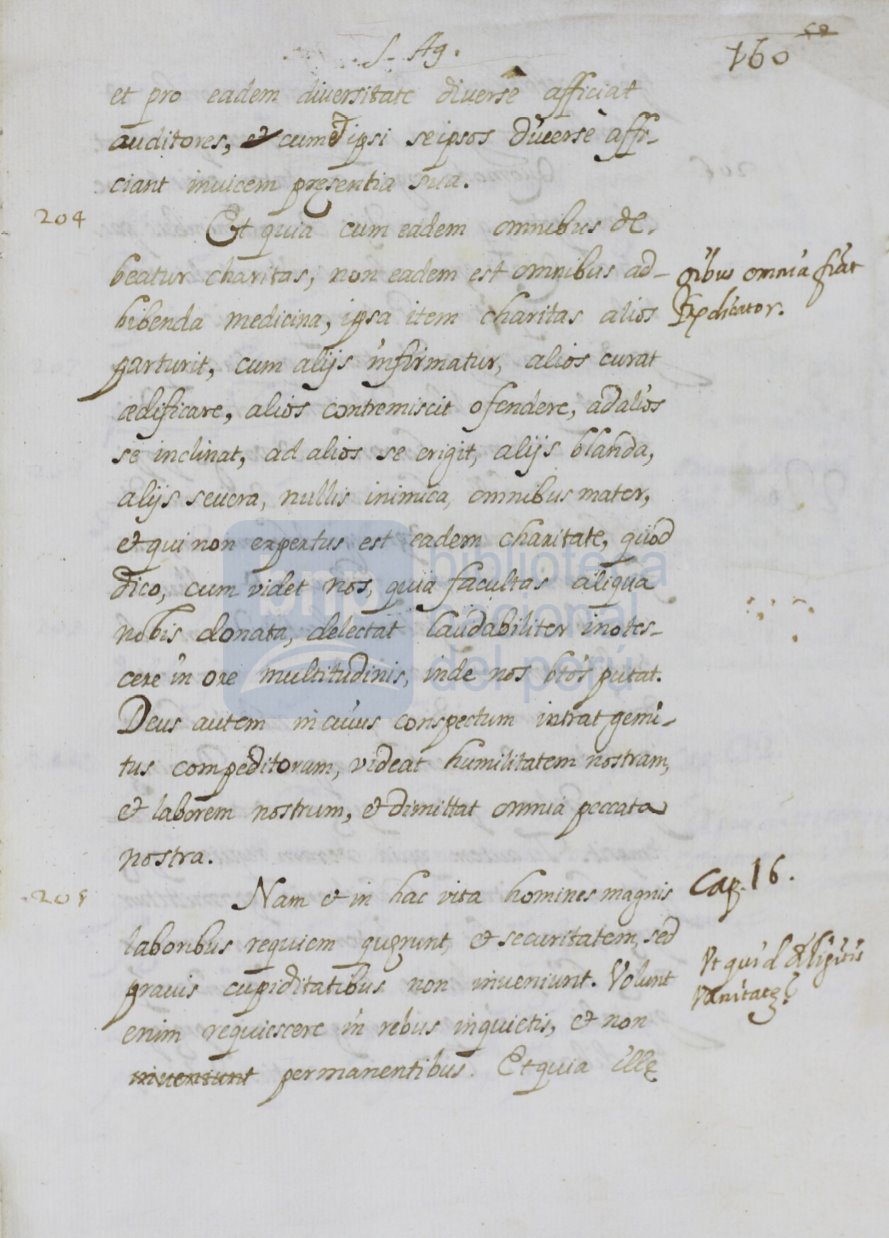 S. Ag.
160
et pro eadem diversitate diverse afficiat
auditores, et cum et ipsi se ipsos diverse affi-
ciant invicem presentia sua.
204
Et quia cum eadem omnibus de-
beatur charitas, non eadem est omnibus ad-
oibus omnia fiat
bibenda medicina, ipsa item charitas alios
Prędicator.
parturit, cum alijs infirmatur, alios curat
ædificare, alios contremiscit ofendere, ad alios
se inclinat, ad alios se erigit, alijs blanda,
alijs severa, nullis inimica, omnibus mater,
et qui non expertus est eadem charitate, quod
dico, cum videt nos, quia facultas aliqua
nobis donata, delectat laudabiliter inotes-
cere in ore multitudinis, inde nos btos putat.
Deus autem in cuius conspectum intrat gemi-
tus compeditorum, videat humilitatem nostram,
et laborem nostrum, et dimittat omnia peccata
nostra.
205
Nam et in hac vita homines magnis
Cap. 16.
laboribus requiem quęrunt, et securitatem, sed
Vt quid diligitis
pravis cupiditatibus non inveniunt. Volunt
vanitatę?
enim requiescere in rebus inquietis, et non
inveniunt permanentibus. Et quia illę
bnp biblioteca
nacional
del perú